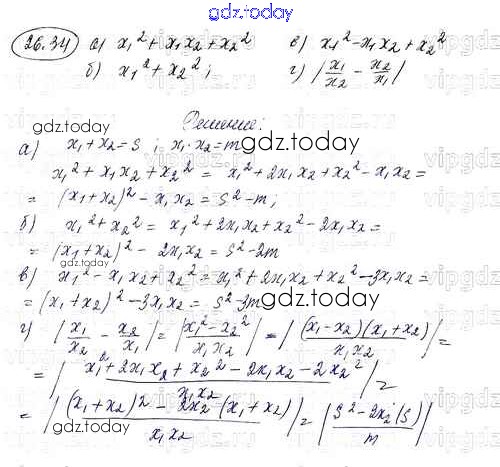 gdz.today
26.34 а) x₁² + x₁x₂ + x₂² в) x₁² - x₁x₂ + x₂²
б) x₁² + x₂²; г) |x₁/x₂ - x₂/x₁|
Решение:
gdz.today
а) x₁ + x₂ = s; x₁·x₂ = m
gdz.today
x₁² + x₁x₂ + x₂² = x₁² + 2x₁x₂ + x₂² - x₁x₂ =
= (x₁ + x₂)² - x₁x₂ = s² - m;
gdz.today
б) x₁² + x₂² = x₁² + 2x₁x₂ + x₂² - 2x₁x₂ =
= (x₁ + x₂)² - 2x₁x₂ = s² - 2m
в) x₁² - x₁x₂ + x₂² = x₁² + 2x₁x₂ + x₂² - 3x₁x₂ =
= (x₁ + x₂)² - 3x₁x₂ = s² - 3m
gdz.today
г) |x₁/x₂ - x₂/x₁| = |(x₁² - x₂²)/(x₁x₂)| = |((x₁ - x₂)(x₁ + x₂))/(x₁x₂)| =
= |(x₁² + 2x₁x₂ + x₂² - 2x₁x₂ - 2x₂²)/(x₁x₂)| =
gdz.today
= |((x₁ + x₂)² - 2x₂(x₁ + x₂))/(x₁x₂)| = |(s² - 2x₂(s))/m|
gdz.today